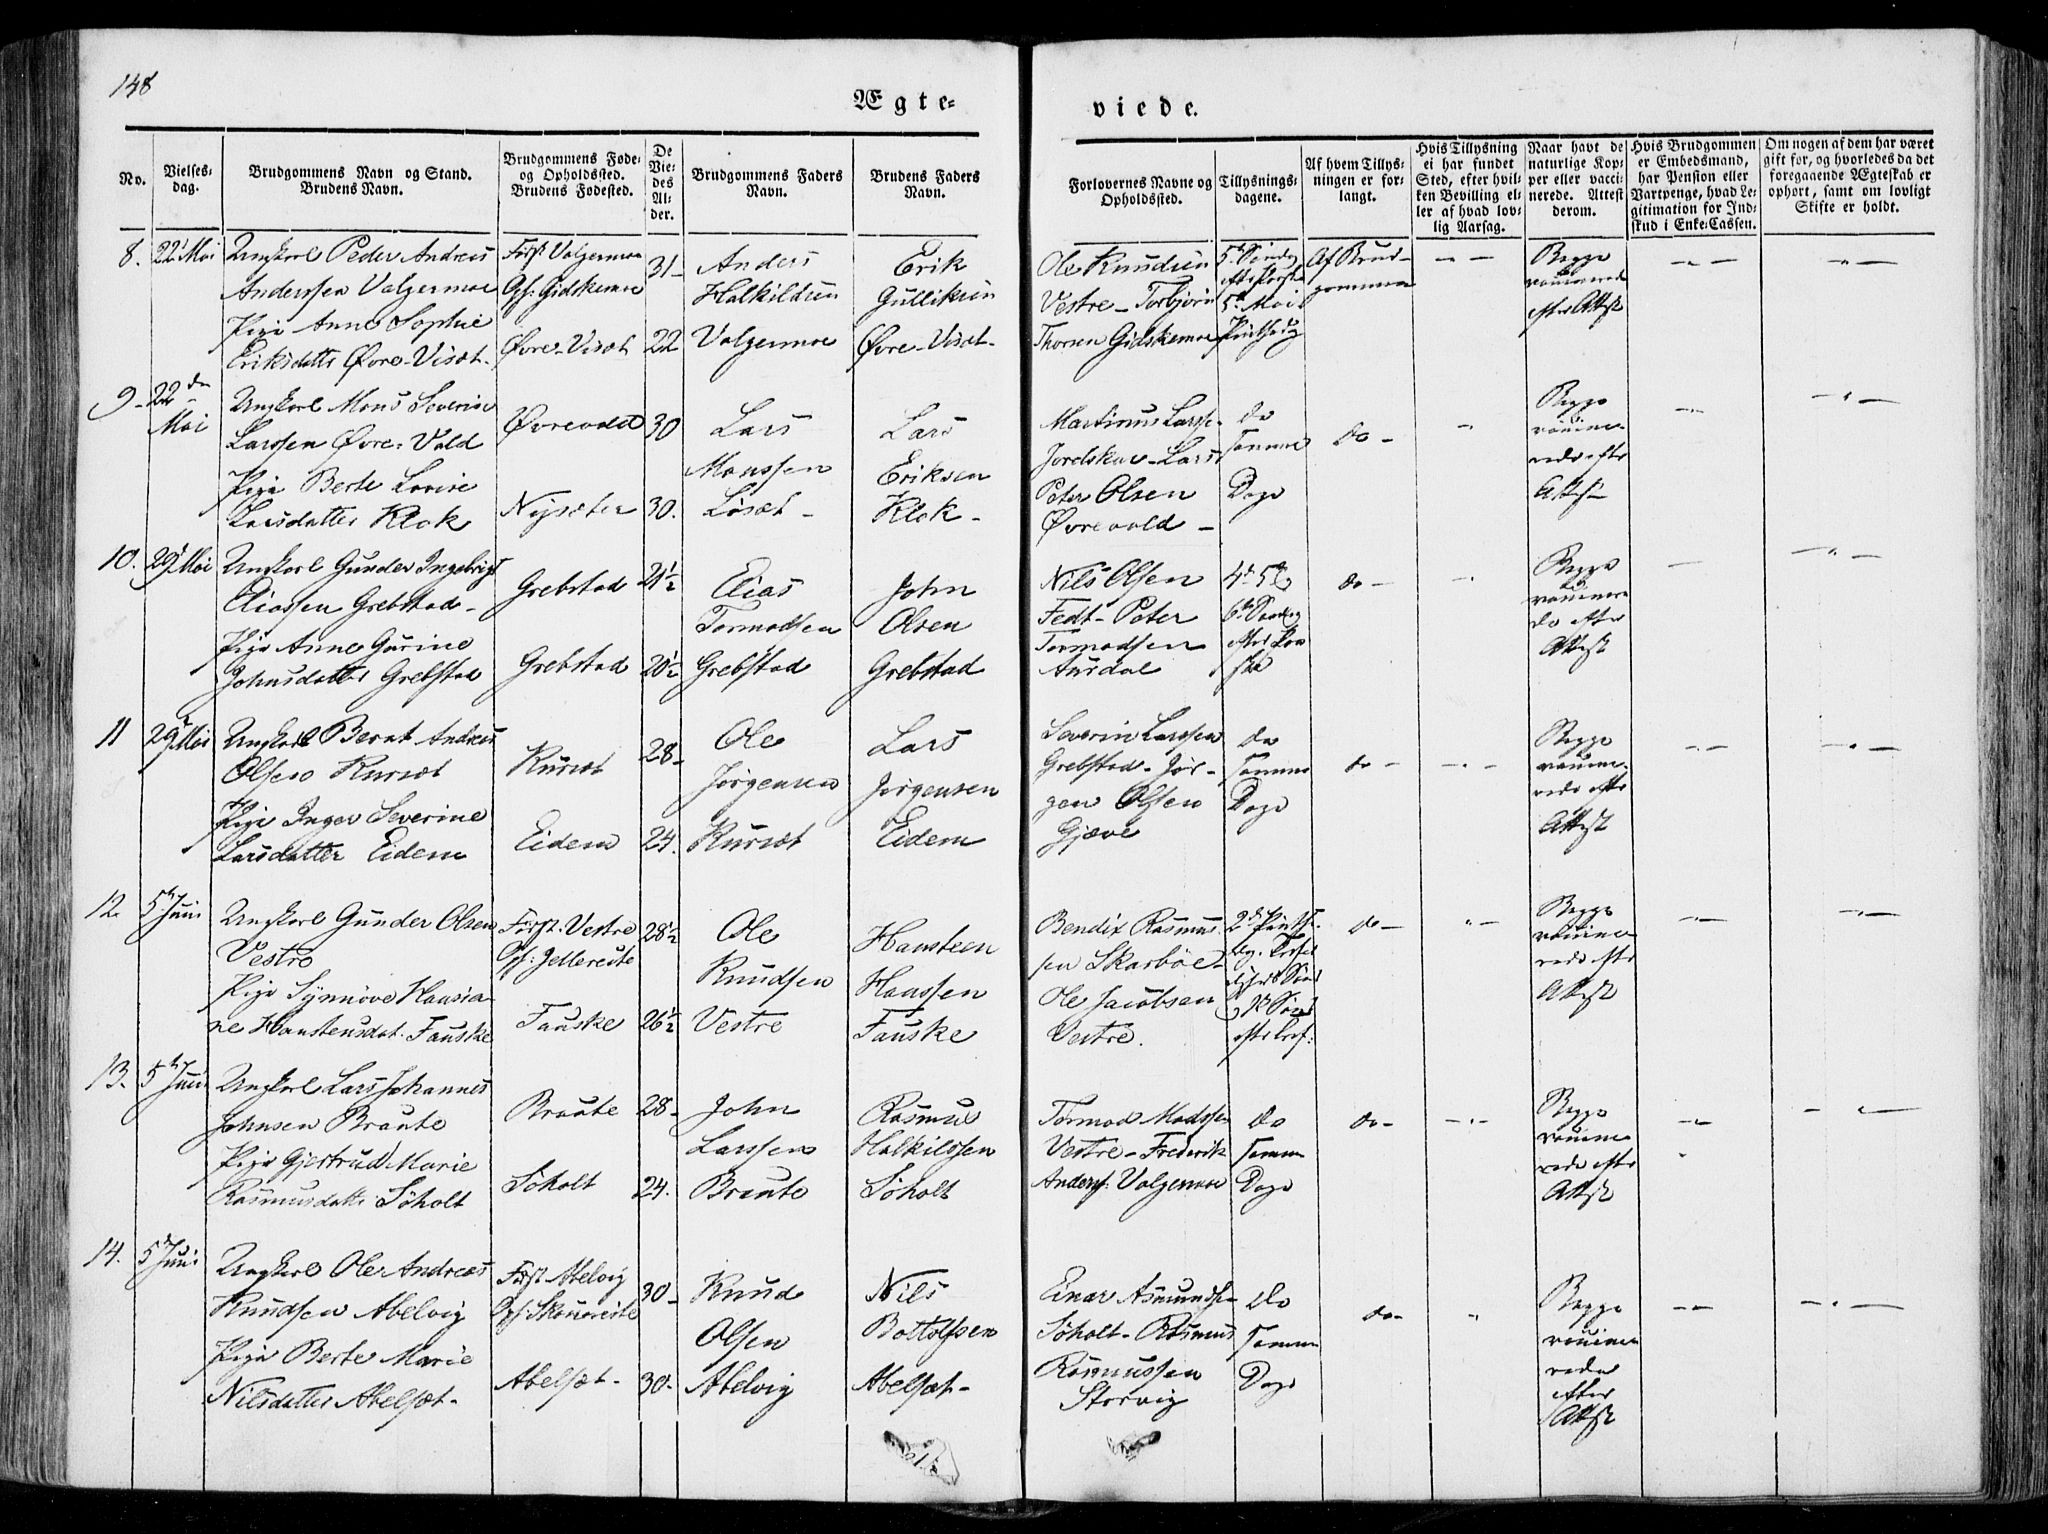 148
Ægte-
viede.
No.
Vielses-
dag.
Brudgommens Navn og Stand.
Brudens Navn.
Brudgommens Føde-
og Opholdssted.
Brudens Fødested.
De
Vie-
des
Al-
der.
Brudgommens Faders
Navn.
Brudens Faders
Navn.
Forlovernes Navne og
Opholdssted.
Tillysnings-
dagene.
Af hvem Tillys-
ningen er for-
langt.
Hvis Tillysning
ei har fundet
Sted, efter hvil-
ken Bevilling el-
ler af hvad lov-
lig Aarsag.
Naar havt de
naturlige Kop-
per eller vacci-
nerede. Attest
derom.
Hvis Brudgommen
er Embedsmand,
har Pension eller
Vartpenge, hvad Le-
gitimation for Ind-
skud i Enke-Cassen.
Om nogen af dem har været
gift før, og hvorledes da det
foregaaende Ægteskab er
ophørt, samt om lovligt
Skifte er holdt.
8.
22 Mai
Ungkarl Peder Andreas
Anderssen Valgermoe
Pige Anne Sophie
Eriksdatter Øvre-Visæt-
Født Valgermoe
Opf: Gidskemoe
Øvre-Visæt
31-
22
Anders
Halkildsen
Valgermoe
Erik
Gulliksen
Øvre-Visæt-
Ole Knudsen
Vestre - Torbjørn
Thorsen Gidskemoe
5te Søndag
efter Paaske
5te Mai
Af Brud-
gommen
Begge
vaccinerede
efter Attest
9-
22de
Mai
Ungkarl Mons Severin
Larssen Øvre-Vold
Pige Berte Lovise
Larsdatter Klok
Øvrevold
Nysæter
30
30.
Lars
Monssen
Løsæt-
Lars
Eriksen
Klok-
Martinus Larsse-
Lars
Peter Olsen
Øvrevold-
do
samme
Dage
do-
Begge
vaccine-
rede efter
Attest
10.
29 Mai
Ungkarl Gunder Ingebrigt
Eliassen Grebstad-
Pige Anne Gurine
Johnsdatter Grebstad
Grebstad
Grebstad
21½
20½
Elias
Tormodsen
Grebstad
John
Olsen
Grebstad
Nils Olsen
Fedt- Peter
Tormodsen
Aursdal
4de 5te
6te Søndag
efter Paa
ske
do-
Begge
vaccinere
de efter
Attest
11
29 Mai
Ungkarl Bernt Andreas
Olsen Kursæt
Pige Inger Severine
Larsdatter Eidem
Kursæt
Eidem
28-
24.
Ole
Jørgensen
Kursæt
Lars
Jørgensen
Eidem
Severin Larssen
Grebstad- Jør-
gen Olsen
Gjæve
do
samme
Dage
do-
Begge
vaccine-
rede efter
Attest
12.
5 Juni
Ungkarl Gunder Olsen
Vestre
Pige Synnøve Hansia-
ne Hanstensdat. Fauske
Født. Vestre
Opf: Jellereite
Fauske
28½
26½
Ole
Knudsen
Vestre
Hansteen
Hanssen
Fauske
Bendix Rasmus-
sen Skarbøe-
Ole Jacobsen
Vestre.
2den Pintse-
dag,
do-
Begge
vaccine
rede efter
Attest
13.
5 Juni
Ungkarl Lars Johannes
Johnsen Braute
Pige Gjertrud Marie
Rasmusdatter Søholt
Braute
Søholt
28-
24.
John
Larssen
Braute
Rasmus
Halkilssen
Søholt
Tormod Madsse-
Vestre- Frederik
Anders: Valgermoe
do
samme
Dage
do-
Begge
vaccine
rede efter
Attest
14.
5 Juni
Ungkarl Ole Andreas
Knudsen Abelvig
Pige Berte Marie
Nilsdatter Abelsæt-
Født Abelvig
Opf: Skouereite
Abelsæt-
30-
30-
Knud
Olsen
Abelvig
Nils
Bottolfsen
Abelsæt-
Einar Asmundse-
Søholt- Rasmus
Rasmussen
Storvig
do
samme
Dage
do-
Begge
vaccine
rede
efter
Attest